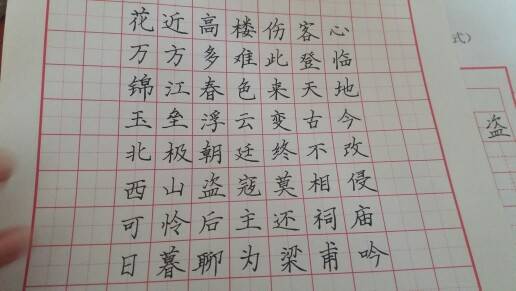 花近高楼伤客心
万方多难此登临
锦江春色来天地
玉垒浮云变古今
北极朝廷终不改
西山盗寇莫相侵
可怜后主还祠庙
日暮聊为梁甫吟
式）
盗